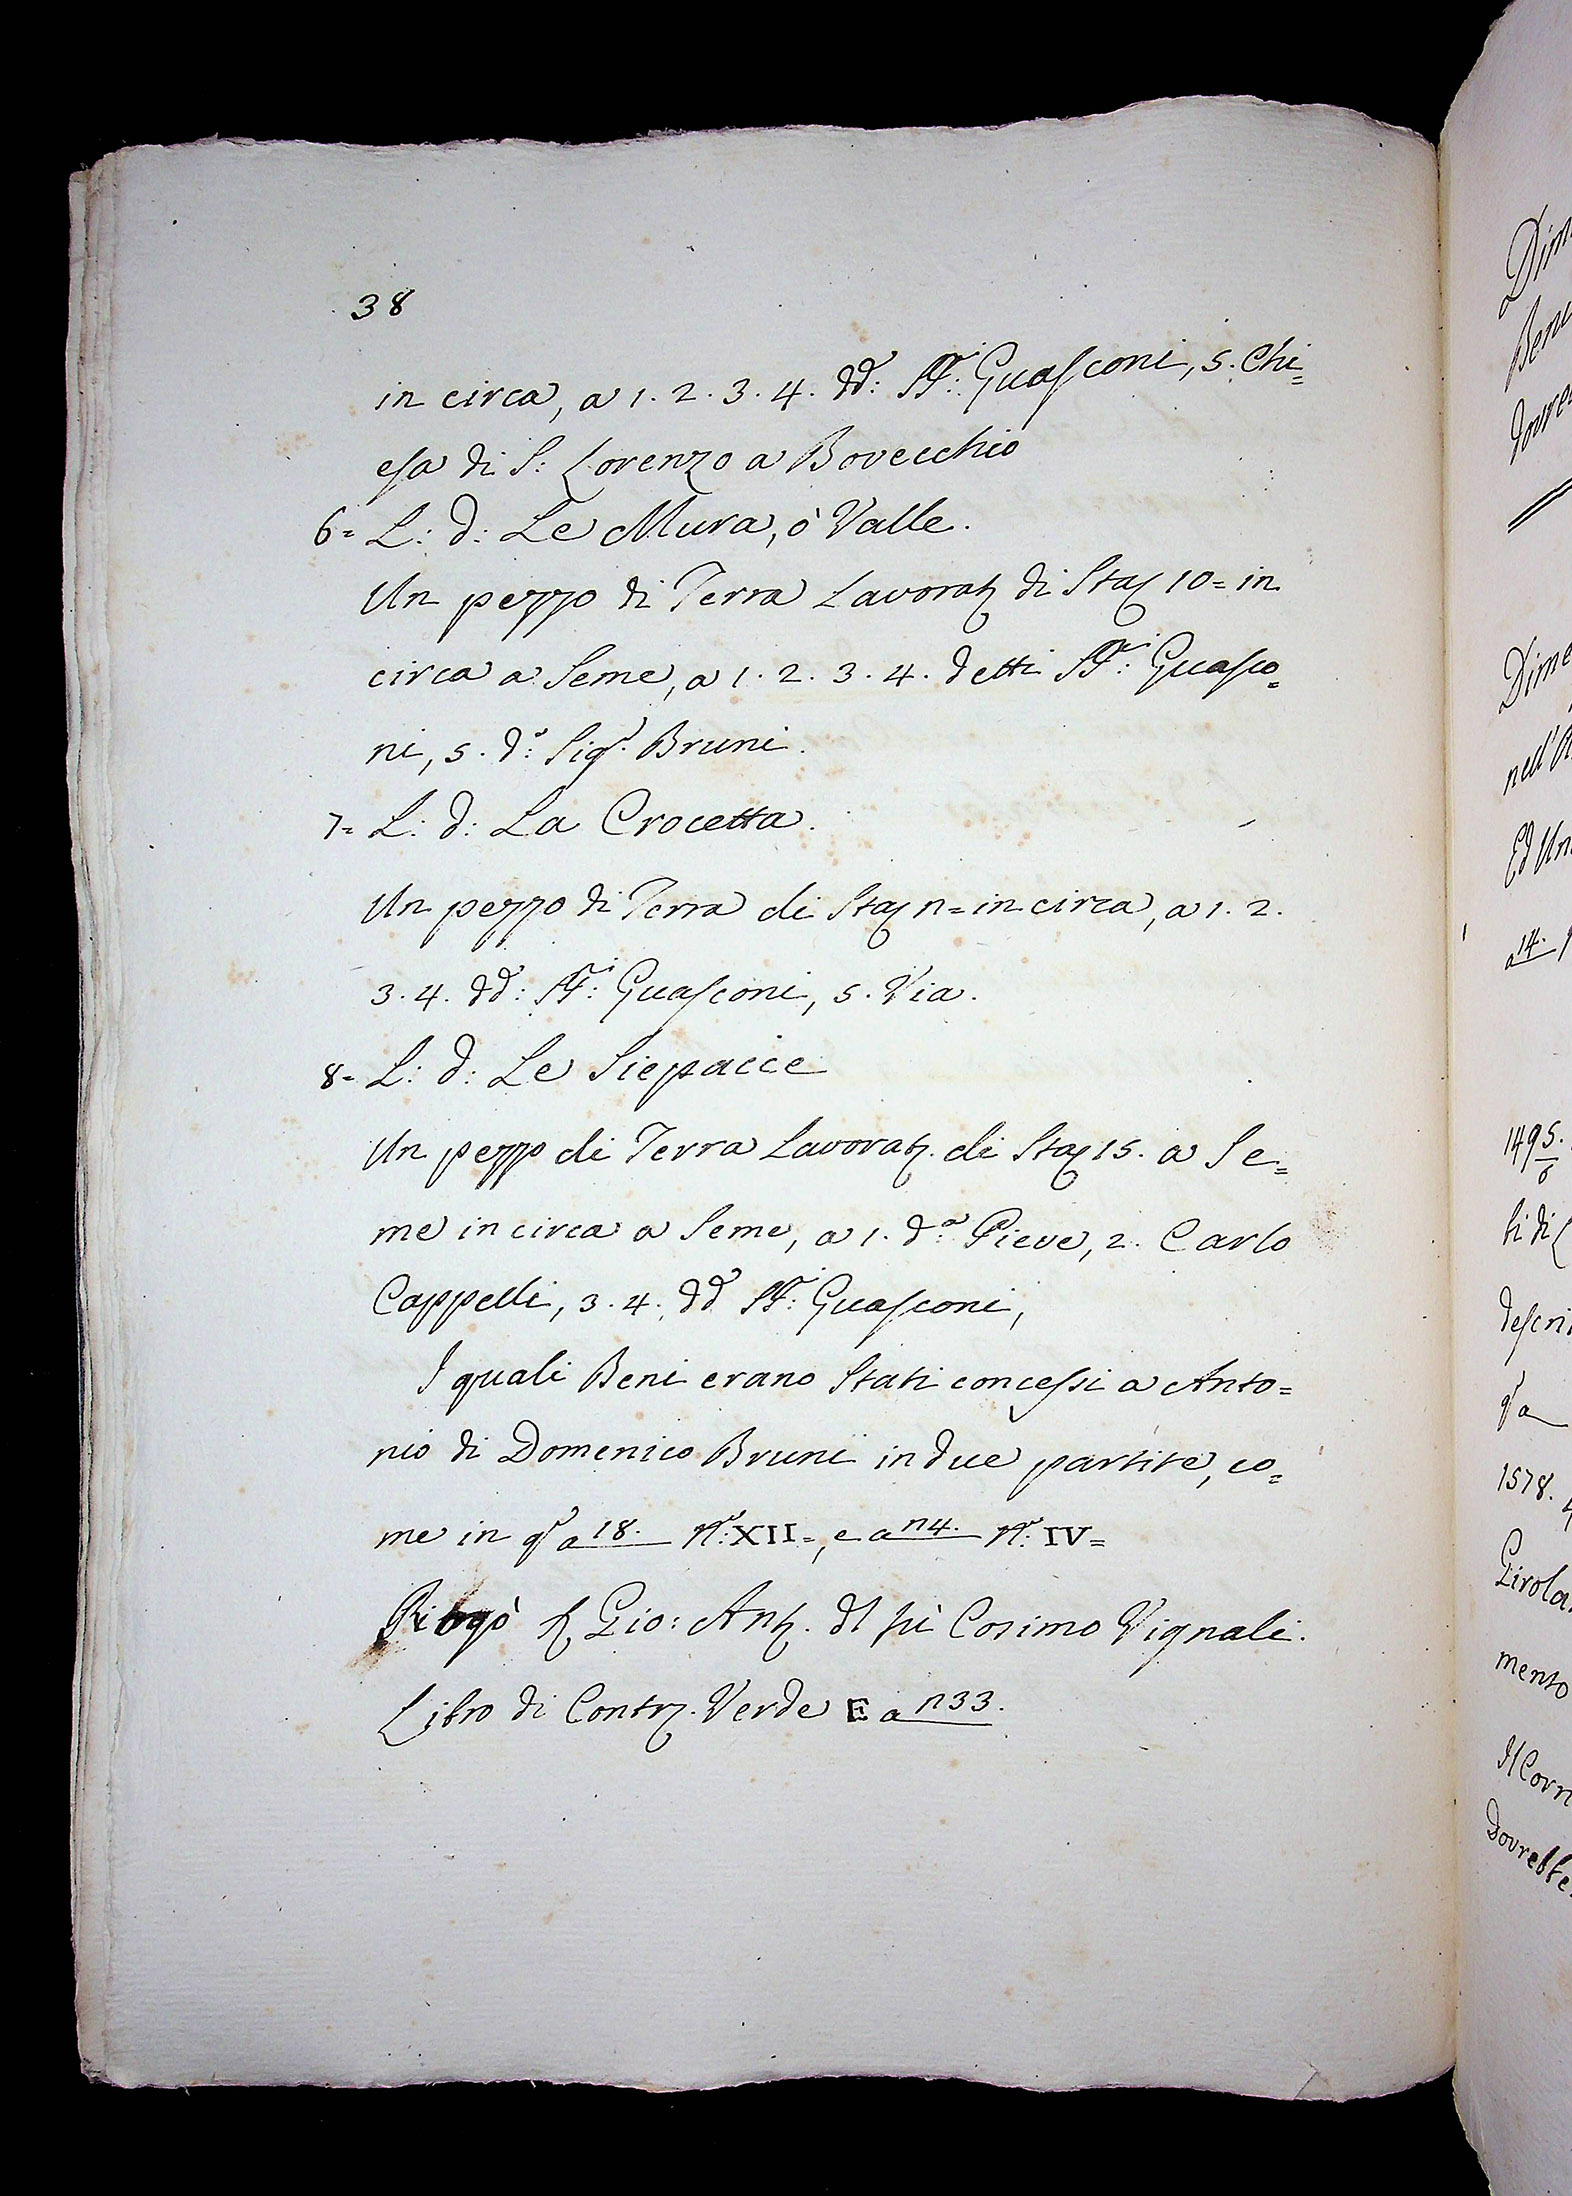 38
in circa, a 1. 2. 3. 4. dd: SS.ri: Guasconi, 5. Chi=
esa di S: Lorenzo a Bovecchio
6= L: d: Le Mura, ò Valle.
Un pezzo di Terra Lavorat. di Sta. 10= in
circa a Seme, a 1. 2. 3. 4. detti SS.ri: Guasco=
ni, 5. d.o: Sig.r Bruni.
7= L: d: La Crocetta.
Un pezzo di Terra di Sta. n= in circa, a 1. 2.
3. 4. dd: SS.ri: Guasconi, 5. Via.
8= L: d: Le Siepacce
Un pezzo di Terra Lavorat. di Sta. 15. a Se=
me in circa a Seme, a 1. d.a Pieve, 2. Carlo
Cappelli, 3. 4. dd SS.ri: Guasconi,
I quali Beni erano Stati concessi a Anto=
nio di Domenico Bruni in due partite, co=
me in q.o a 18. N.o: XII=, e a n4. N.o: IV=
Gio: Ant. dl fù Cosimo Vignali.
Libro di Contr. Verde E a n33.
Dovrebbe
nell'
Ed Un
a 14.
1495.
6
ti di
descri
1578.
Girola
mento
Il Corn